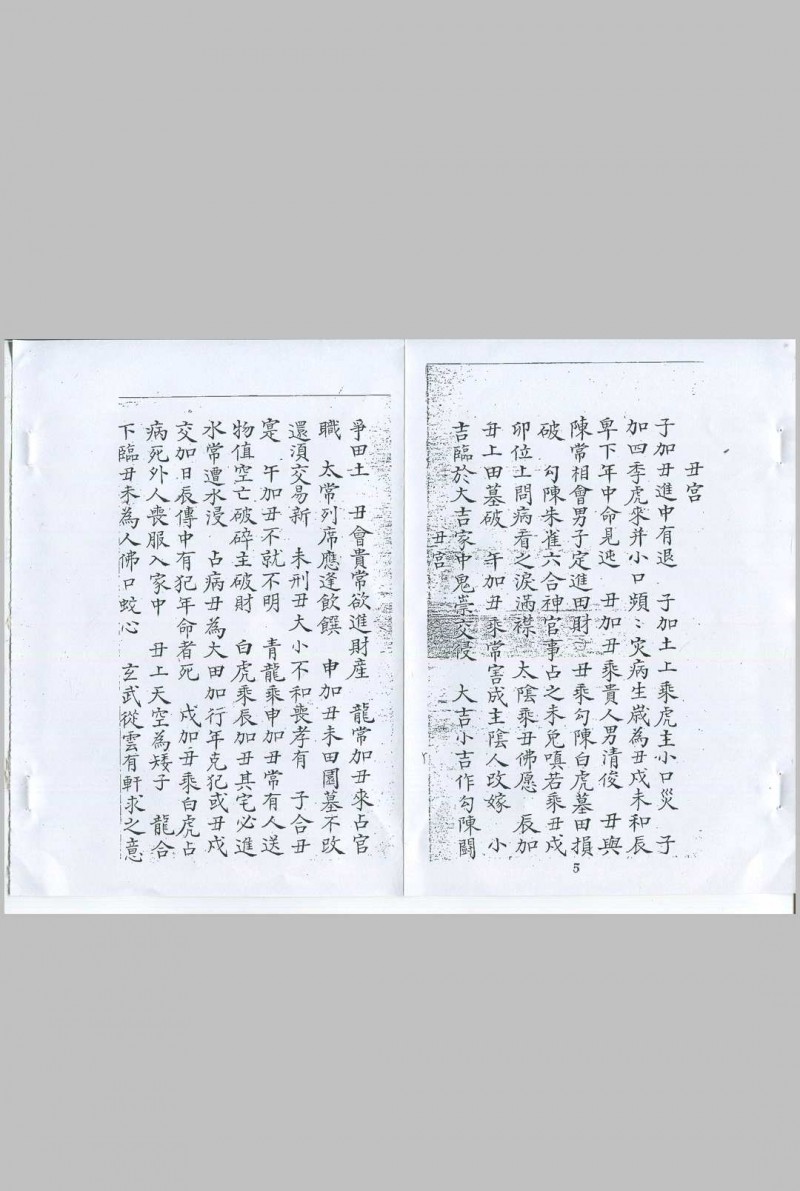 丑宮
子加丑進中有退　子加土上乘虎主小口災　子
加四季虎來并小口頻〻灾病生嵗為丑戍未和辰
卑下年中命見迍　丑加丑乘貴人男清俊　丑與
陳常相會男子定進田財　丑乘勾陳白虎墓田損
破　勾陳朱雀六合神官事占之未免嗔若乘丑戍
卯位土問病看之淚滿襟　太陰乘丑佛愿　辰加
丑上田墓破　午加丑乘常害成主陰人改嫁　小
吉臨於大吉家中鬼祟交侵　大吉小吉作勾陳闘
丑宮
5
爭田土　丑會貴常欲進財産　龍常加丑來占官
職　太常列席應逢飲饌　申加丑未田園墓不改
還須交易新　未刑丑大小不和喪孝有　子合丑
寔　午加丑不就不明　青龍乘申加丑常有人送
物值空亡破碎主破財　白虎乘辰加丑其宅必進
水常遭水浸　占病丑為大田加行年克犯或丑戍
交加日辰傳中有犯年命者死　戍加丑乘白虎占
病死外人喪服入家中　丑上天空為矮子　龍合
下臨丑未為人佛口蛟心　玄武從雲有軒求之意